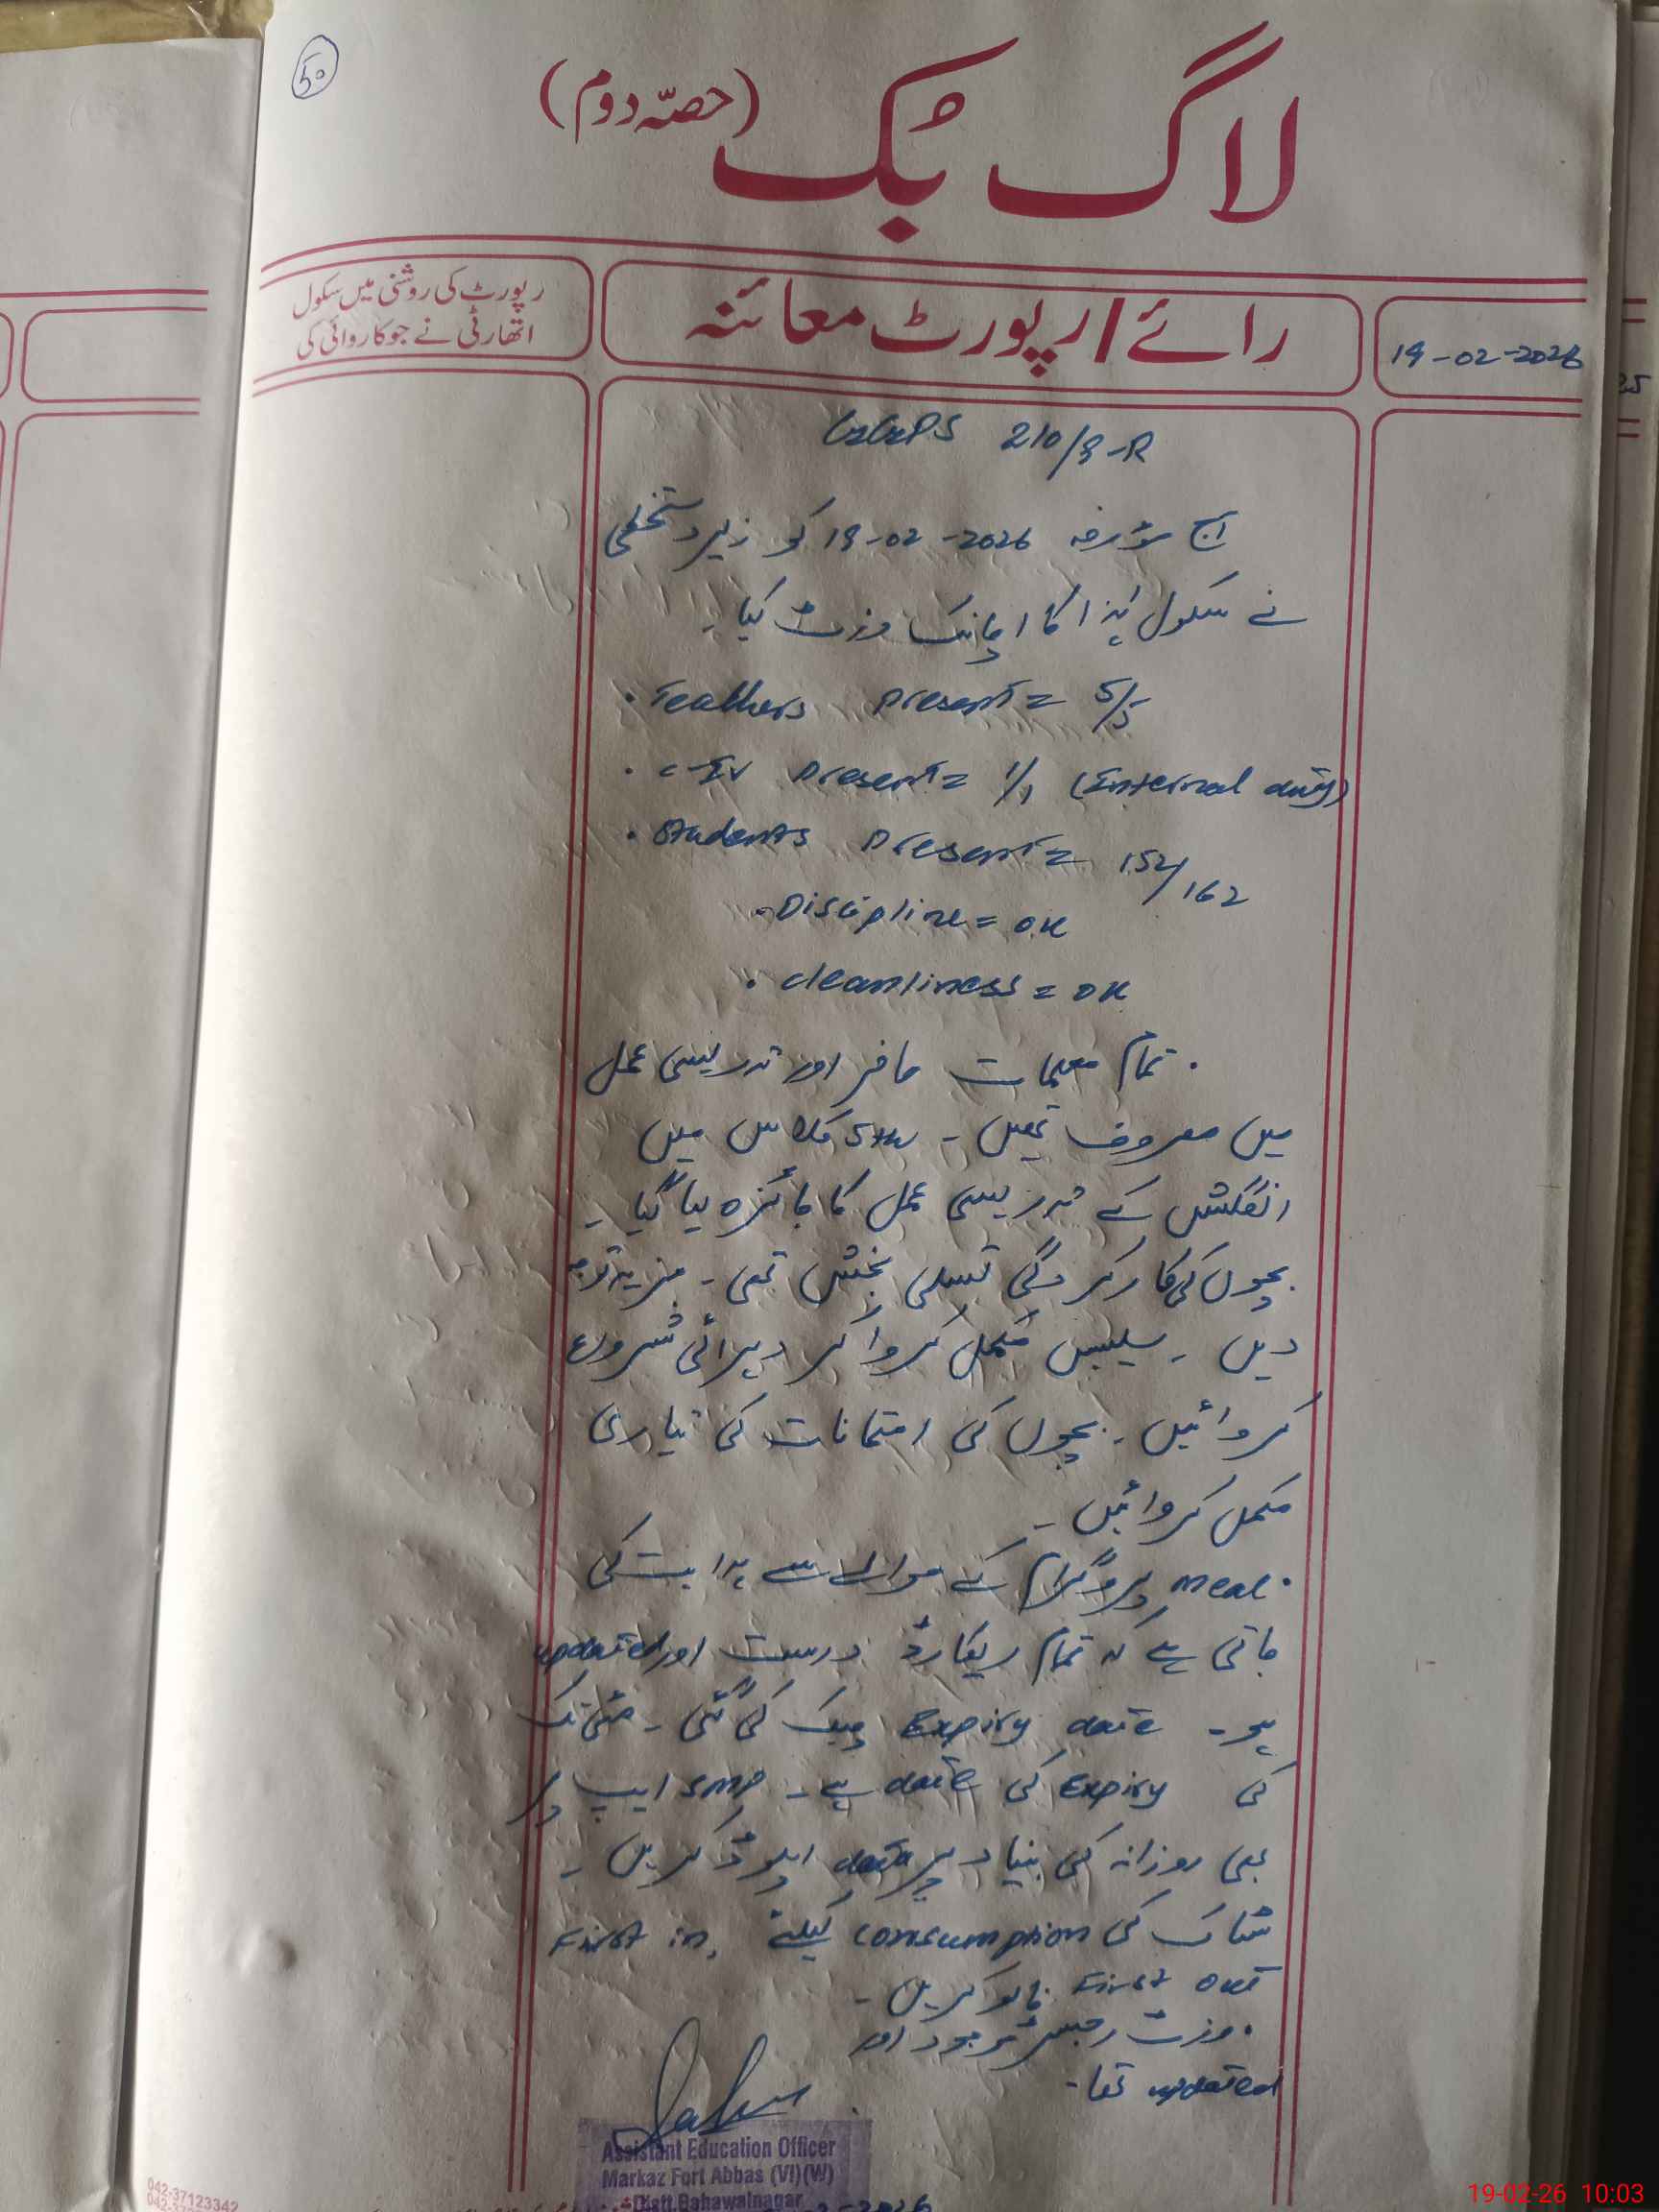 50
لاگ بُک (حصّہ دوم)
رائے / رپورٹ معائنہ
رپورٹ کی روشنی میں سکول
اتھارٹی نے جو کاروائی کی
19-02-2026
GGPS 210/9-R
آج مؤرخہ 19-02-2026 کو زیر دستخطی
نے سکول ہٰذا کا اچانک وزٹ کیا۔
• Teachers Present = 5/5
• C-IV Present = 1/1 (Internal duty)
• Students Present = 152/162
• Discipline = OK
• cleanliness = OK
• تمام معلمات حاضر اور تدریسی عمل
میں مصروف تھیں۔ 5th کلاس میں
انگلش کے تدریسی عمل کا جائزہ لیا گیا۔
بچوں کی کارکردگی تسلی بخش تھی۔ مزید توجہ
دیں۔ سلیبس مکمل کروا کر دہرائی شروع
کروائیں۔ بچوں کی امتحانات کی تیاری
مکمل کروائیں۔
• meal پروگرام کے حوالے سے ہدایت کی
جاتی ہے کہ تمام ریکارڈ درست اور updated
ہو۔ Expiry date چیک کی گئی۔ مئی تک
کی Expiry کی date ہے۔ SMP ایپ پر
بھی روزانہ کی بنیاد پر data اپلوڈ کریں۔
سٹاک کی consumption کیلئے First in,
First out فالو کریں۔
• وزٹ رجسٹر موجود اور
updated تھا۔
Assistant Education Officer
Markaz Fort Abbas (VI)(W)
Distt. Bahawalnagar
042-37123342
19-02-26 10:03